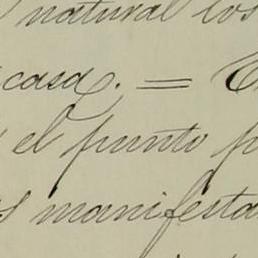 natural los
casa. =
el punto
manifesta